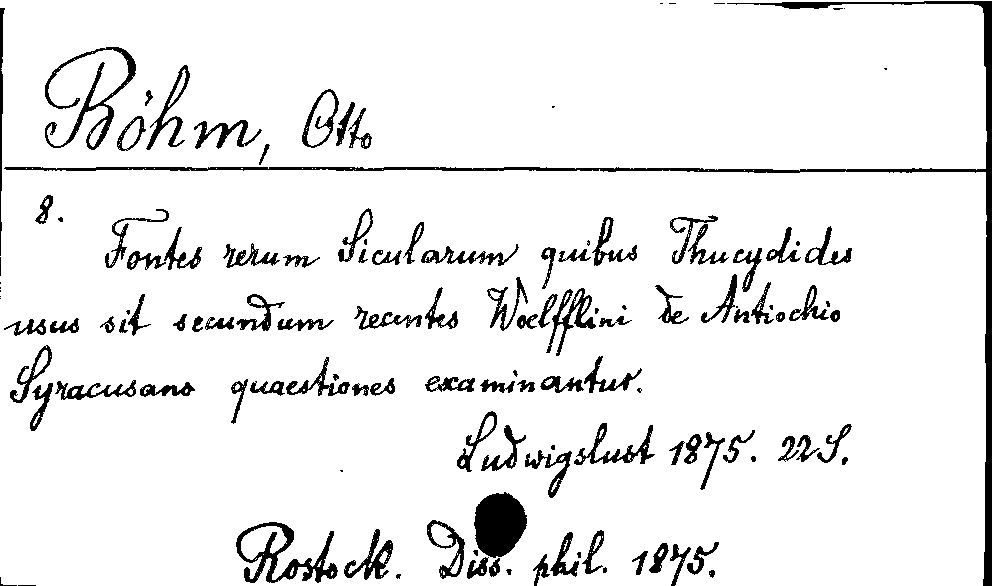 Böhm, Otto
8.
Fontes rerum Sicularum quibus Thucydides
usus sit secundum recentes Woelfflini de Antiochio
Syracusano quaestiones examinantur.
Ludwigslust 1875. 22 S.
Rostock. Diss. phil. 1875.